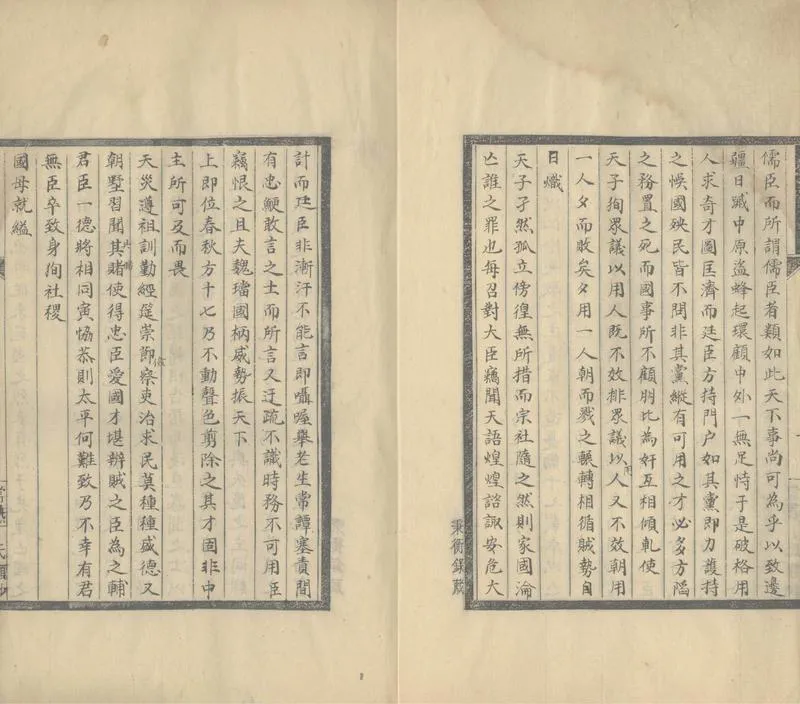 儒臣而所謂儒臣者類如此天下事尚可為乎以致邊
疆日蹙中原盜蜂起環顧中外一無足恃于是破格用
人求奇才圖匡濟而廷臣方持門户如其黨即力護持
之悞國殃民皆不問非其黨縱有可用之才必多方陷
之務置之死而國事所不顧朋比為奸互相傾軋使
天子狥眾議以用人既不效排眾議以用人又不效朝用
一人夕而敗矣夕用一人朝而戮之輾轉相循賊勢自
日熾
天子孑然孤立傍徨無所措而宗社隨之然則家國淪
亡誰之罪也每召對大臣竊聞天語煌煌諮諏安危大
秉衡鐸蕺
計而廷臣非漸汗不能言即囁嚅舉老生常譚塞責間
有忠鯁敢言之士而所言又迂疏不識時務不可用臣
竊恨之且夫魏璫國柄威勢振天下
上即位春秋方十七乃不動聲色剪除之其才固非中
主所可及而畏
天災遵祖訓勤經筵崇節儉察吏治求民莫種種盛德又
朝野習聞其共睹使得忠臣愛國才堪辦賊之臣為之輔
君臣一德將相同寅恊恭則太平何難致乃不幸有君
無臣卒致身殉社稷
國母就縊